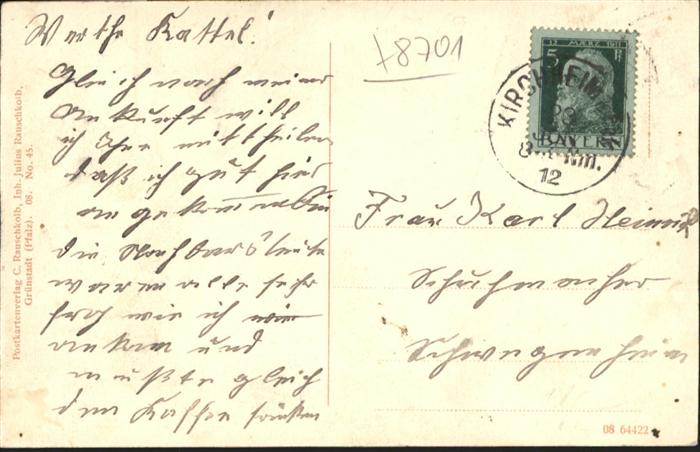 Werthe Kattel!
Gleich nach meiner
Ankunft will
ich Ihne mittheilen
daß ich gut hier
angekommen bin
die Nachbarsleute
waren alle sehr
froh wie ich
ankam und
mußte gleich
den Kaffee trinken
+8701
12. MÄRZ 1911
5
BAYERN
KIRCHHEIM
8 Nm.
12
Frau Karl Heinrich
Schuhmacher
Schwegenheim
Postkartenverlag C. Rauschkolb, Inh. Julius Rauschkolb,
Grünstadt (Pfalz). 08. No. 45.
08 64422